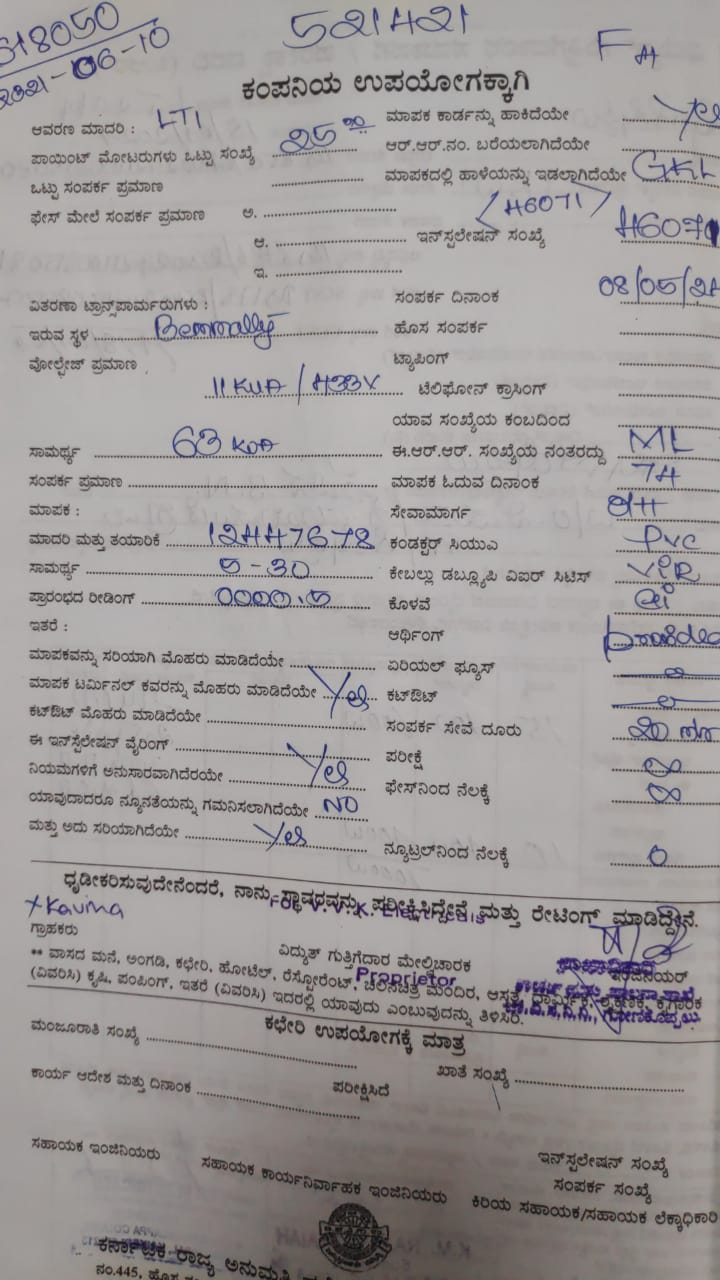 618050
2021-06-10
521421
F
ಕಂಪನಿಯ ಉಪಯೋಗಕ್ಕಾಗಿ
ಆವರಣ ಮಾದರಿ : LT1 ಮಾಪಕ ಕಾರ್ಡನ್ನು ಹಾಕಿದೆಯೇ Yes
ಪಾಯಿಂಟ್ ಮೋಟರುಗಳು ಒಟ್ಟು ಸಂಖ್ಯೆ 25 ಆರ್.ಆರ್.ನಂ. ಬರೆಯಲಾಗಿದೆಯೇ
ಒಟ್ಟು ಸಂಪರ್ಕ ಪ್ರಮಾಣ ಮಾಪಕದಲ್ಲಿ ಹಾಳೆಯನ್ನು ಇಡಲಾಗಿದೆಯೇ GKL
ಫೇಸ್ ಮೇಲೆ ಸಂಪರ್ಕ ಪ್ರಮಾಣ ಅ. <46071>
ಆ. ಇನ್‌ಸ್ಟಲೇಷನ್ ಸಂಖ್ಯೆ 46071
ಇ.
ವಿತರಣಾ ಟ್ರಾನ್ಸ್‌ಪಾರ್ಮರುಗಳು : ಸಂಪರ್ಕ ದಿನಾಂಕ 08/05/21
ಇರುವ ಸ್ಥಳ ಹೊಸ ಸಂಪರ್ಕ
ವೋಲ್ಟೇಜ್ ಪ್ರಮಾಣ ಟ್ಯಾಪಿಂಗ್
11KVA / 433V ಟೆಲಿಫೋನ್ ಕ್ರಾಸಿಂಗ್
ಯಾವ ಸಂಖ್ಯೆಯ ಕಂಬದಿಂದ
ಸಾಮರ್ಥ್ಯ 63 KVA ಈ.ಆರ್.ಆರ್. ಸಂಖ್ಯೆಯ ನಂತರದ್ದು ML
ಸಂಪರ್ಕ ಪ್ರಮಾಣ ಮಾಪಕ ಓದುವ ದಿನಾಂಕ 74
ಮಾಪಕ : ಸೇವಾಮಾರ್ಗ
ಮಾದರಿ ಮತ್ತು ತಯಾರಿಕೆ 12447678 ಕಂಡಕ್ಟರ್ ಸಿಯುಎ PVC
ಸಾಮರ್ಥ್ಯ 5-30 ಕೇಬಲ್ಲು ಡಬ್ಲ್ಯೂಪಿ ವಿಐರ್ ಸಿಟಿಸ್ ViR
ಪ್ರಾರಂಭದ ರೀಡಿಂಗ್ 0000.5 ಕೊಳವೆ
ಇತರೆ : ಆರ್ಥಿಂಗ್
ಮಾಪಕವನ್ನು ಸರಿಯಾಗಿ ಮೊಹರು ಮಾಡಿದೆಯೇ ಏರಿಯಲ್ ಫ್ಯೂಸ್
ಮಾಪಕ ಟರ್ಮಿನಲ್ ಕವರನ್ನು ಮೊಹರು ಮಾಡಿದೆಯೇ Yes ಕಟ್‌ಔಟ್
ಕಟ್‌ಔಟ್ ಮೊಹರು ಮಾಡಿದೆಯೇ ಸಂಪರ್ಕ ಸೇವೆ ದೂರು 20
ಈ ಇನ್‌ಸ್ಟೆಲೇಷನ್ ವೈರಿಂಗ್ ಪರೀಕ್ಷೆ ∞
ನಿಯಮಗಳಿಗೆ ಅನುಸಾರವಾಗಿದೆರಯೇ Yes ಫೇಸ್‌ನಿಂದ ನೆಲಕ್ಕೆ ∞
ಯಾವುದಾದರೂ ನ್ಯೂನತೆಯನ್ನು ಗಮನಿಸಲಾಗಿದೆಯೇ NO
ಮತ್ತು ಅದು ಸರಿಯಾಗಿದೆಯೇ Yes ನ್ಯೂಟ್ರಲ್‌ನಿಂದ ನೆಲಕ್ಕೆ 0
ಧೃಡೀಕರಿಸುವುದೇನೆಂದರೆ, ನಾನು ಸ್ಥಾವರವನ್ನು ಪರೀಕ್ಷಿಸಿದ್ದೇನೆ ಮತ್ತು ರೇಟಿಂಗ್ ಮಾಡಿದ್ದೇನೆ.
ಗ್ರಾಹಕರು ವಿದ್ಯುತ್ ಗುತ್ತಿಗೆದಾರ ಮೇಲ್ವಿಚಾರಕ ಇಂಜಿನಿಯರ್
Proprietor
** ವಾಸದ ಮನೆ, ಅಂಗಡಿ, ಕಛೇರಿ, ಹೋಟೆಲ್, ರೆಸ್ಟೋರೆಂಟ್, ಚಲನಚಿತ್ರ ಮಂದಿರ, ಆಸ್ಪತ್ರೆ, ಧಾರ್ಮಿಕ, ಶೈಕ್ಷಣಿಕ, ಕೈಗಾರಿಕ
(ವಿವರಿಸಿ) ಕೃಷಿ, ಪಂಪಿಂಗ್, ಇತರೆ (ವಿವರಿಸಿ) ಇದರಲ್ಲಿ ಯಾವುದು ಎಂಬುವುದನ್ನು ತಿಳಿಸಿರಿ.
ಕಛೇರಿ ಉಪಯೋಗಕ್ಕೆ ಮಾತ್ರ
ಮಂಜೂರಾತಿ ಸಂಖ್ಯೆ ಖಾತೆ ಸಂಖ್ಯೆ
ಕಾರ್ಯ ಆದೇಶ ಮತ್ತು ದಿನಾಂಕ ಪರೀಕ್ಷಿಸಿದೆ
ಇನ್‌ಸ್ಟಲೇಷನ್ ಸಂಖ್ಯೆ
ಸಂಪರ್ಕ ಸಂಖ್ಯೆ
ಸಹಾಯಕ ಇಂಜಿನಿಯರು ಸಹಾಯಕ ಕಾರ್ಯನಿರ್ವಾಹಕ ಇಂಜಿನಿಯರು ಕಿರಿಯ ಸಹಾಯಕ/ಸಹಾಯಕ ಲೆಕ್ಕಾಧಿಕಾರಿ
ಕರ್ನಾಟಕ ರಾಜ್ಯ ಅನುಮತಿ
ನಂ.445, ಹೊಸ